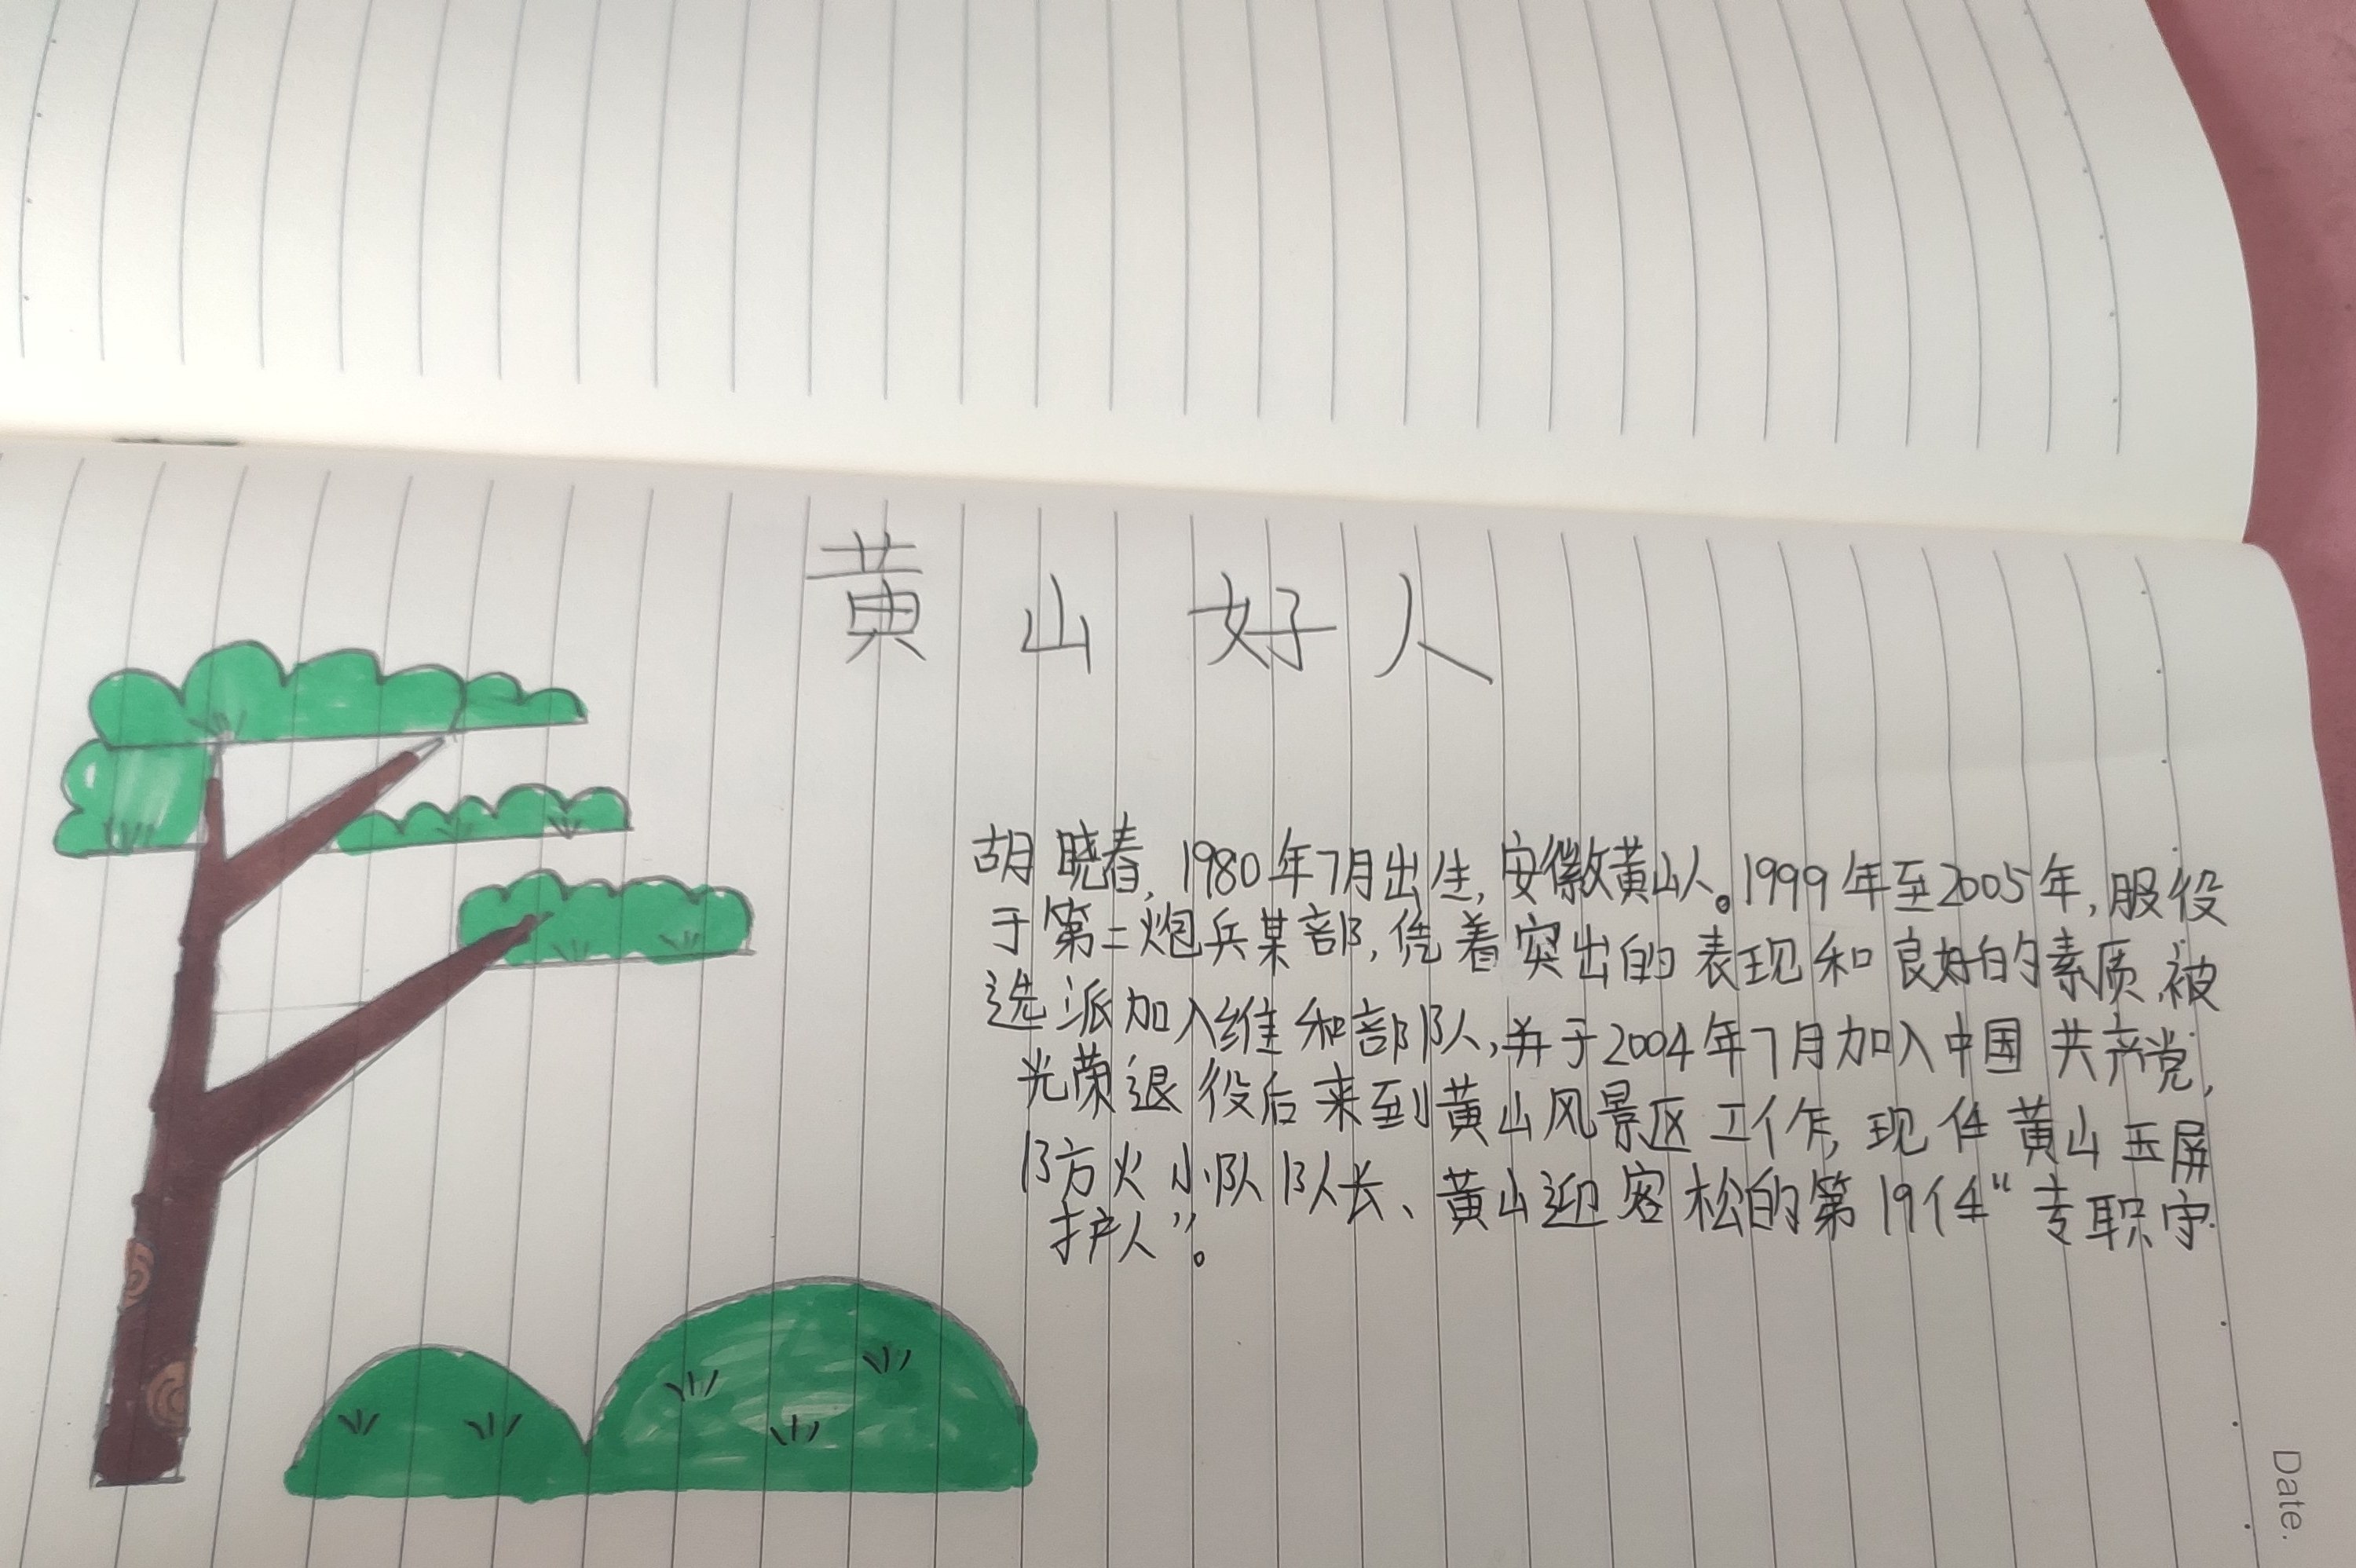 黄山好人
胡晓春,1980年7月出生,安徽黄山人。1999年至2005年,服役
于第二炮兵某部,凭着突出的表现和良好的素质,被
选派加入维和部队,并于2004年7月加入中国共产党,
光荣退役后来到黄山风景区工作,现任“黄山玉屏
防火小队队长、黄山迎客松的第19任“专职守
护人”。
Date.